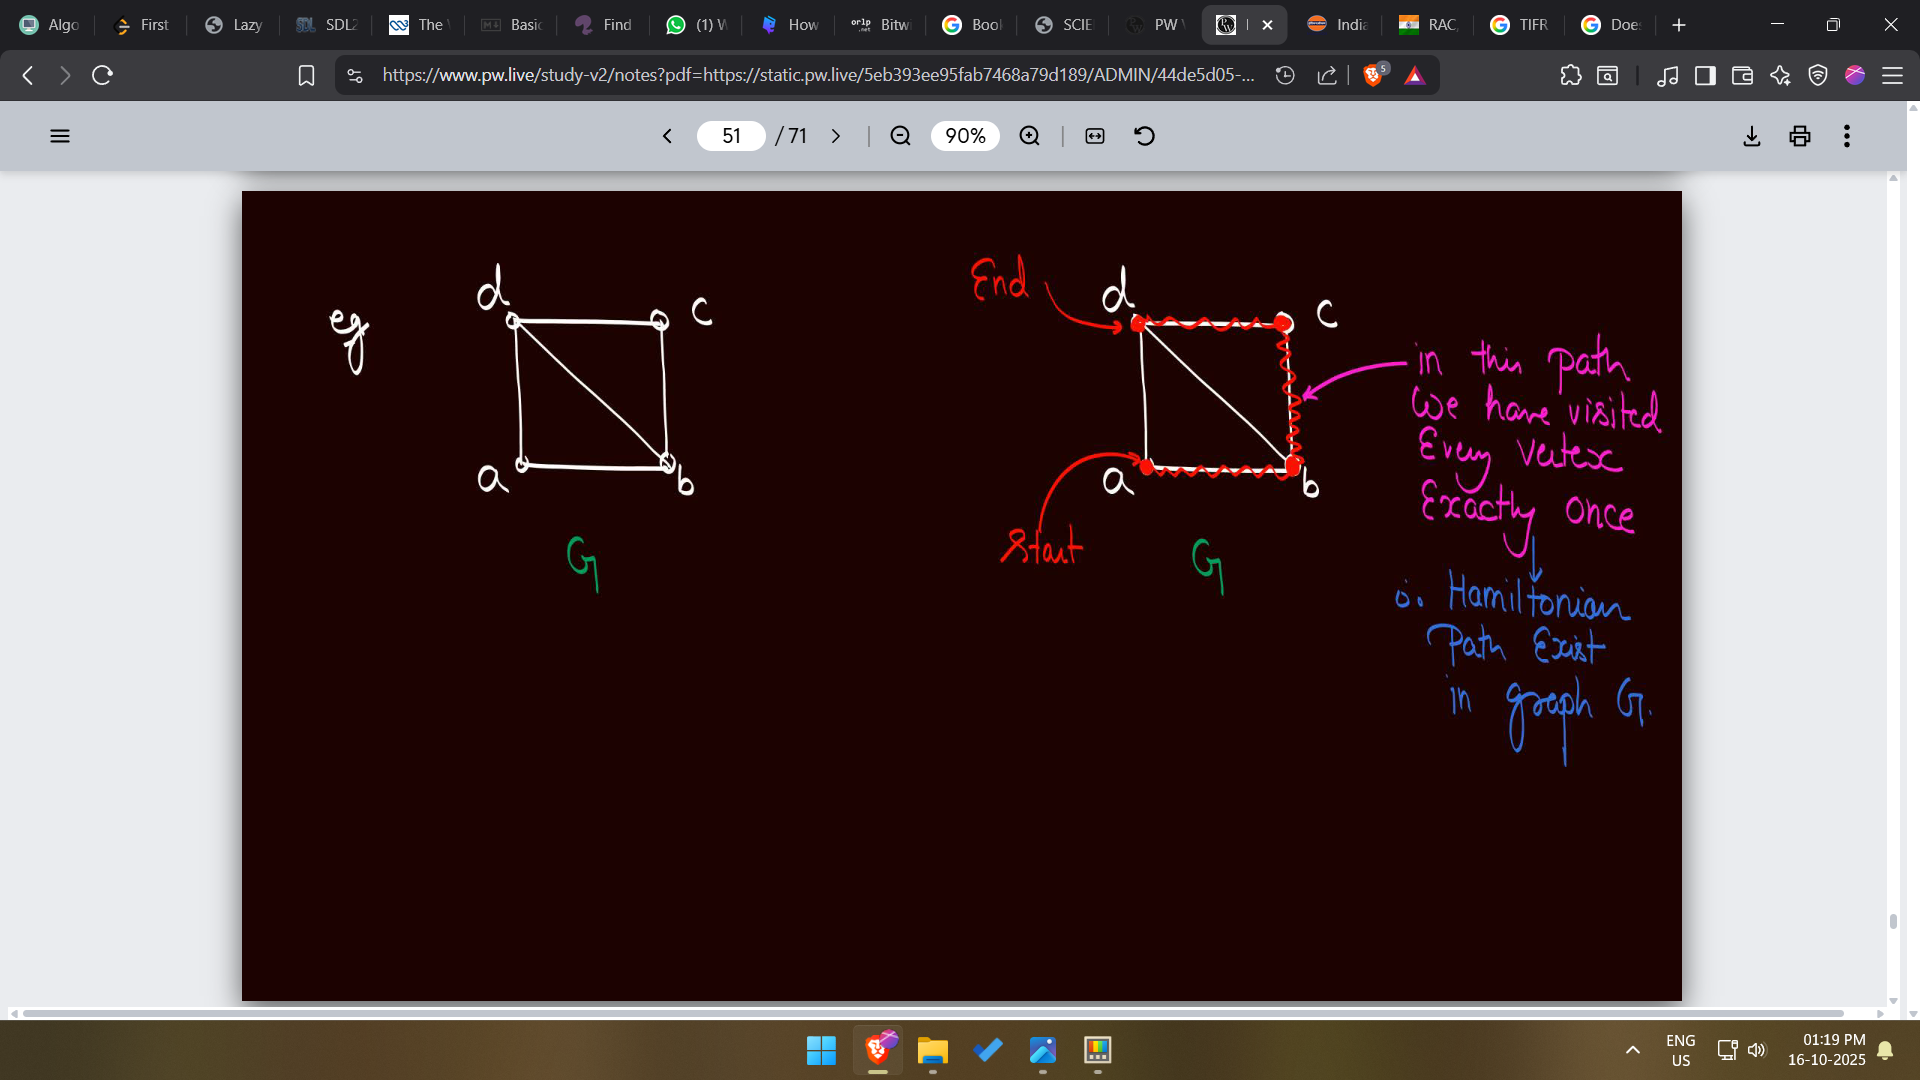 Algo
First
Lazy
SDL2
The
Basic
Find
(1) W
How
orlp .net
Bitwi
Book
SCIE
PW
India
RAC,
TIFR
Does
https://www.pw.live/study-v2/notes?pdf=https://static.pw.live/5eb393ee95fab7468a79d189/ADMIN/44de5d05-...
5
51 / 71
90%
eg
d
c
a
b
G
End
d
c
a
b
Start
G
in this path
We have visited
Every Vertex
Exactly once
∴ Hamiltonian
Path Exist
in graph G.
ENG
US
01:19 PM
16-10-2025